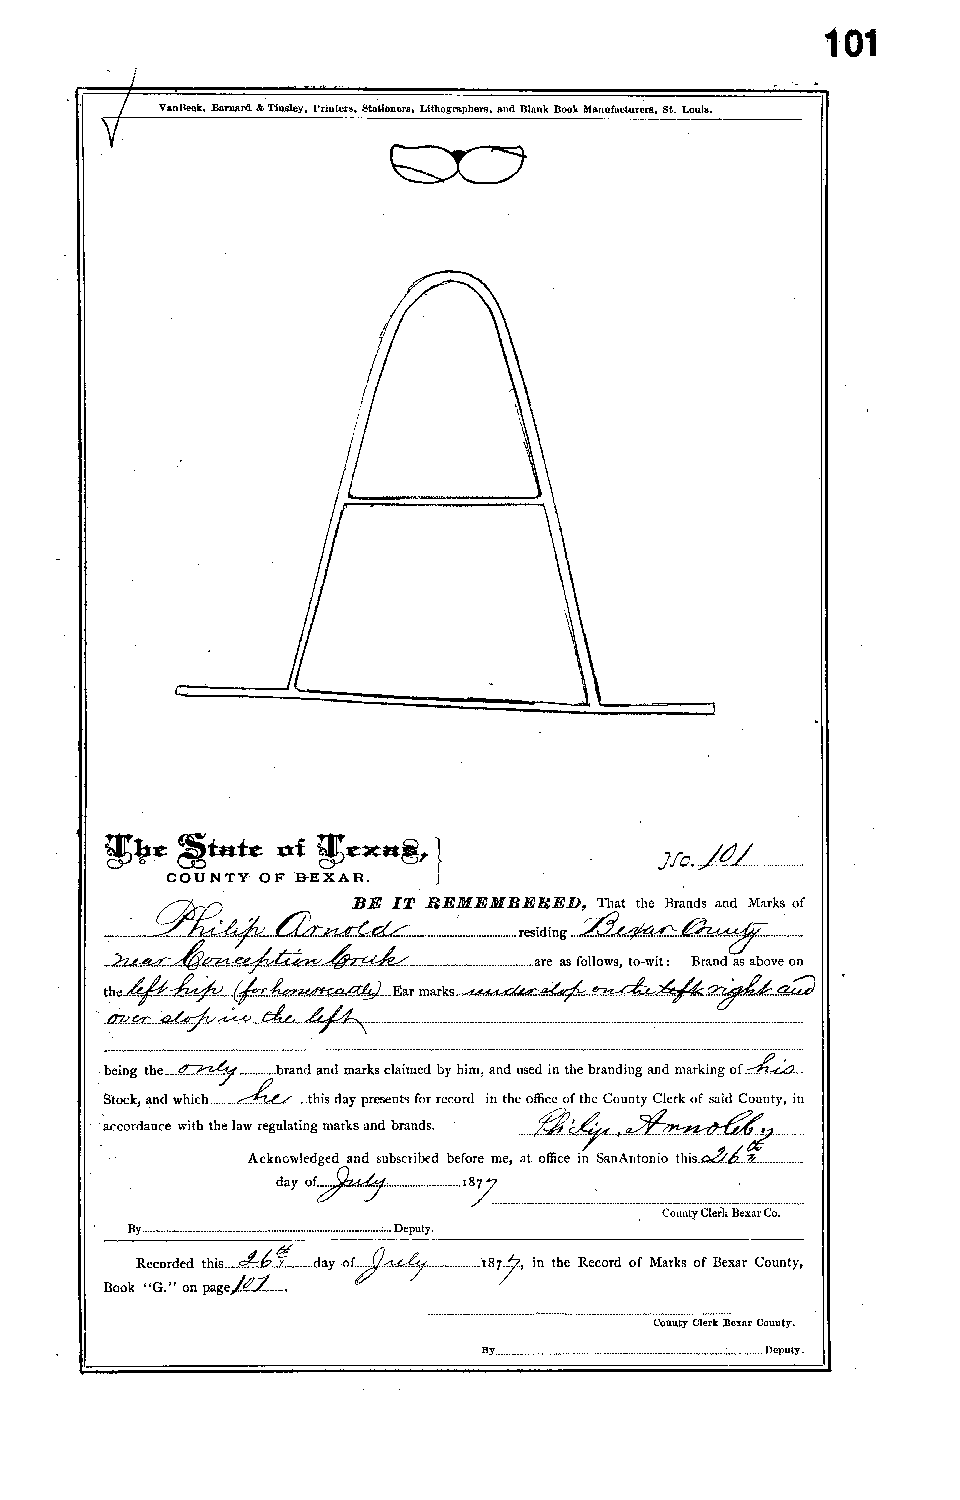 101
VanBeek, Barnard & Tinsley, Printers, Stationers, Lithographers, and Blank Book Manufacturers, St. Louis.
The State of Texas,
COUNTY OF BEXAR.
No. 101
BE IT REMEMBERED, That the Brands and Marks of
Philip Arnold residing Bexar County
near Conception Creek are as follows, to-wit: Brand as above on
the left hip (for horses cattle) Ear marks under slop on the left right and
over slop in the left
being the only brand and marks claimed by him, and used in the branding and marking of his
Stock, and which he this day presents for record in the office of the County Clerk of said County, in
accordance with the law regulating marks and brands.
Philip Arnold
Acknowledged and subscribed before me, at office in SanAntonio this 26th
day of July 1877
County Clerk Bexar Co.
By Deputy.
Recorded this 26th day of July 1877, in the Record of Marks of Bexar County,
Book "G." on page 101.
County Clerk Bexar County.
By Deputy.